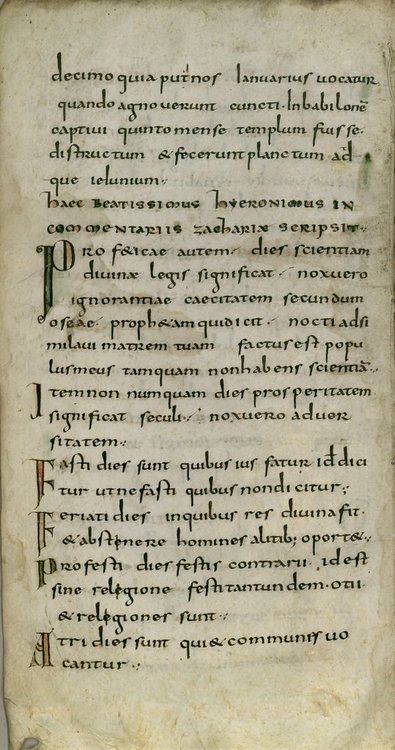 decimo quia put nos Ianuarius uocatur
quando agnouerunt cuncti. In babilonē
captiui quinto mense templum fuisse.
distructum & fecerunt planctum ad
que ieiunium.
haec beatissimus hyeronimus in
commentariis zachariae scripsit.
Prof&icae autem. dies scientiam
diuinae legis significat. nox uero
ignorantiae caecitatem secundum
oseae. proph&am qui dicit. nocti adsi
milaui matrem tuam factus est popu
lus meus tamquam non habens scientiā.
Item non numquam dies prosperitatem
significat seculi. nox uero aduer
sitatem.
Fasti dies sunt quibus ius fatur id ē dici
tur ut nefasti quibus non dicitur.
Feriati dies in quibus res diuina fit.
& abstenere homines a litib; oport&.
Profesti dies festis contrarii. id est
sine relegione festi tantundem. otii
& relegiones sunt.
Atri dies sunt qui & communes uo
cantur.